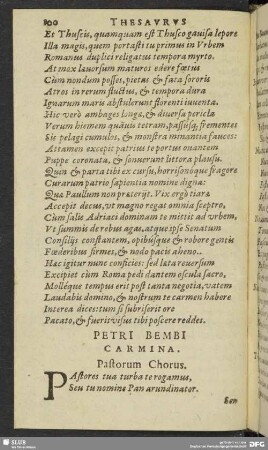 100 THESAVRVS
Et Thuscis, quamquam est Thusco gavisa lepore
Illa magis, quem portasti tu primus in Vrbem
Romanus duplici religatus tempora myrto.
At mox lauorsum maturos edere fœtus
Cùm nondum posses, pietas & fata sororis
Atros in rerum fluctus, & tempora dura
Ignarum maris abstulerunt florenti iuuenta.
Hic verò ambages longa, & diuersa pericla
Verum hiemem quduis tetram, passusq; frementes
Sæpe pelagi cumulos, & monstra immania fauces:
Attamen excepit patrius te portus ouantem
Puppe coronata, & sonuerunt littora plausu.
Quin & parta tibi ex cursu, horrisonoque fragore
Curarum patrio sapientia nomine digna:
Qua Paullum non præcerit. Vix ergò tiara
Accepit decus, vt magno regat omnia sceptro,
Cùm salis Adriaci dominam te mittit ad vrbem,
Vt summis de rebus agas, atque ipse Senatum
Consilijs constantem, opibúsque & robore gentis
Fœderibus firmes, & nodo pacis aheno.
Hac igitur nunc conficies: sed lata reuersum
Excipiet cùm Roma pedi dantem oscula sacro,
Mollèque tempus erit post tanta negotia, vatem
Laudabis domino, & nostrum te carmen habere
Interea dicestum si subriserit ore
Pacato, & fuerit visus tibi poscere reddes.
PETRI BEMBI
CARMINA.
Pastorum Chorus.
PAstores tua turba te rogamus,
Seu tu nomine Pan arundinator.
Seu
SLUB